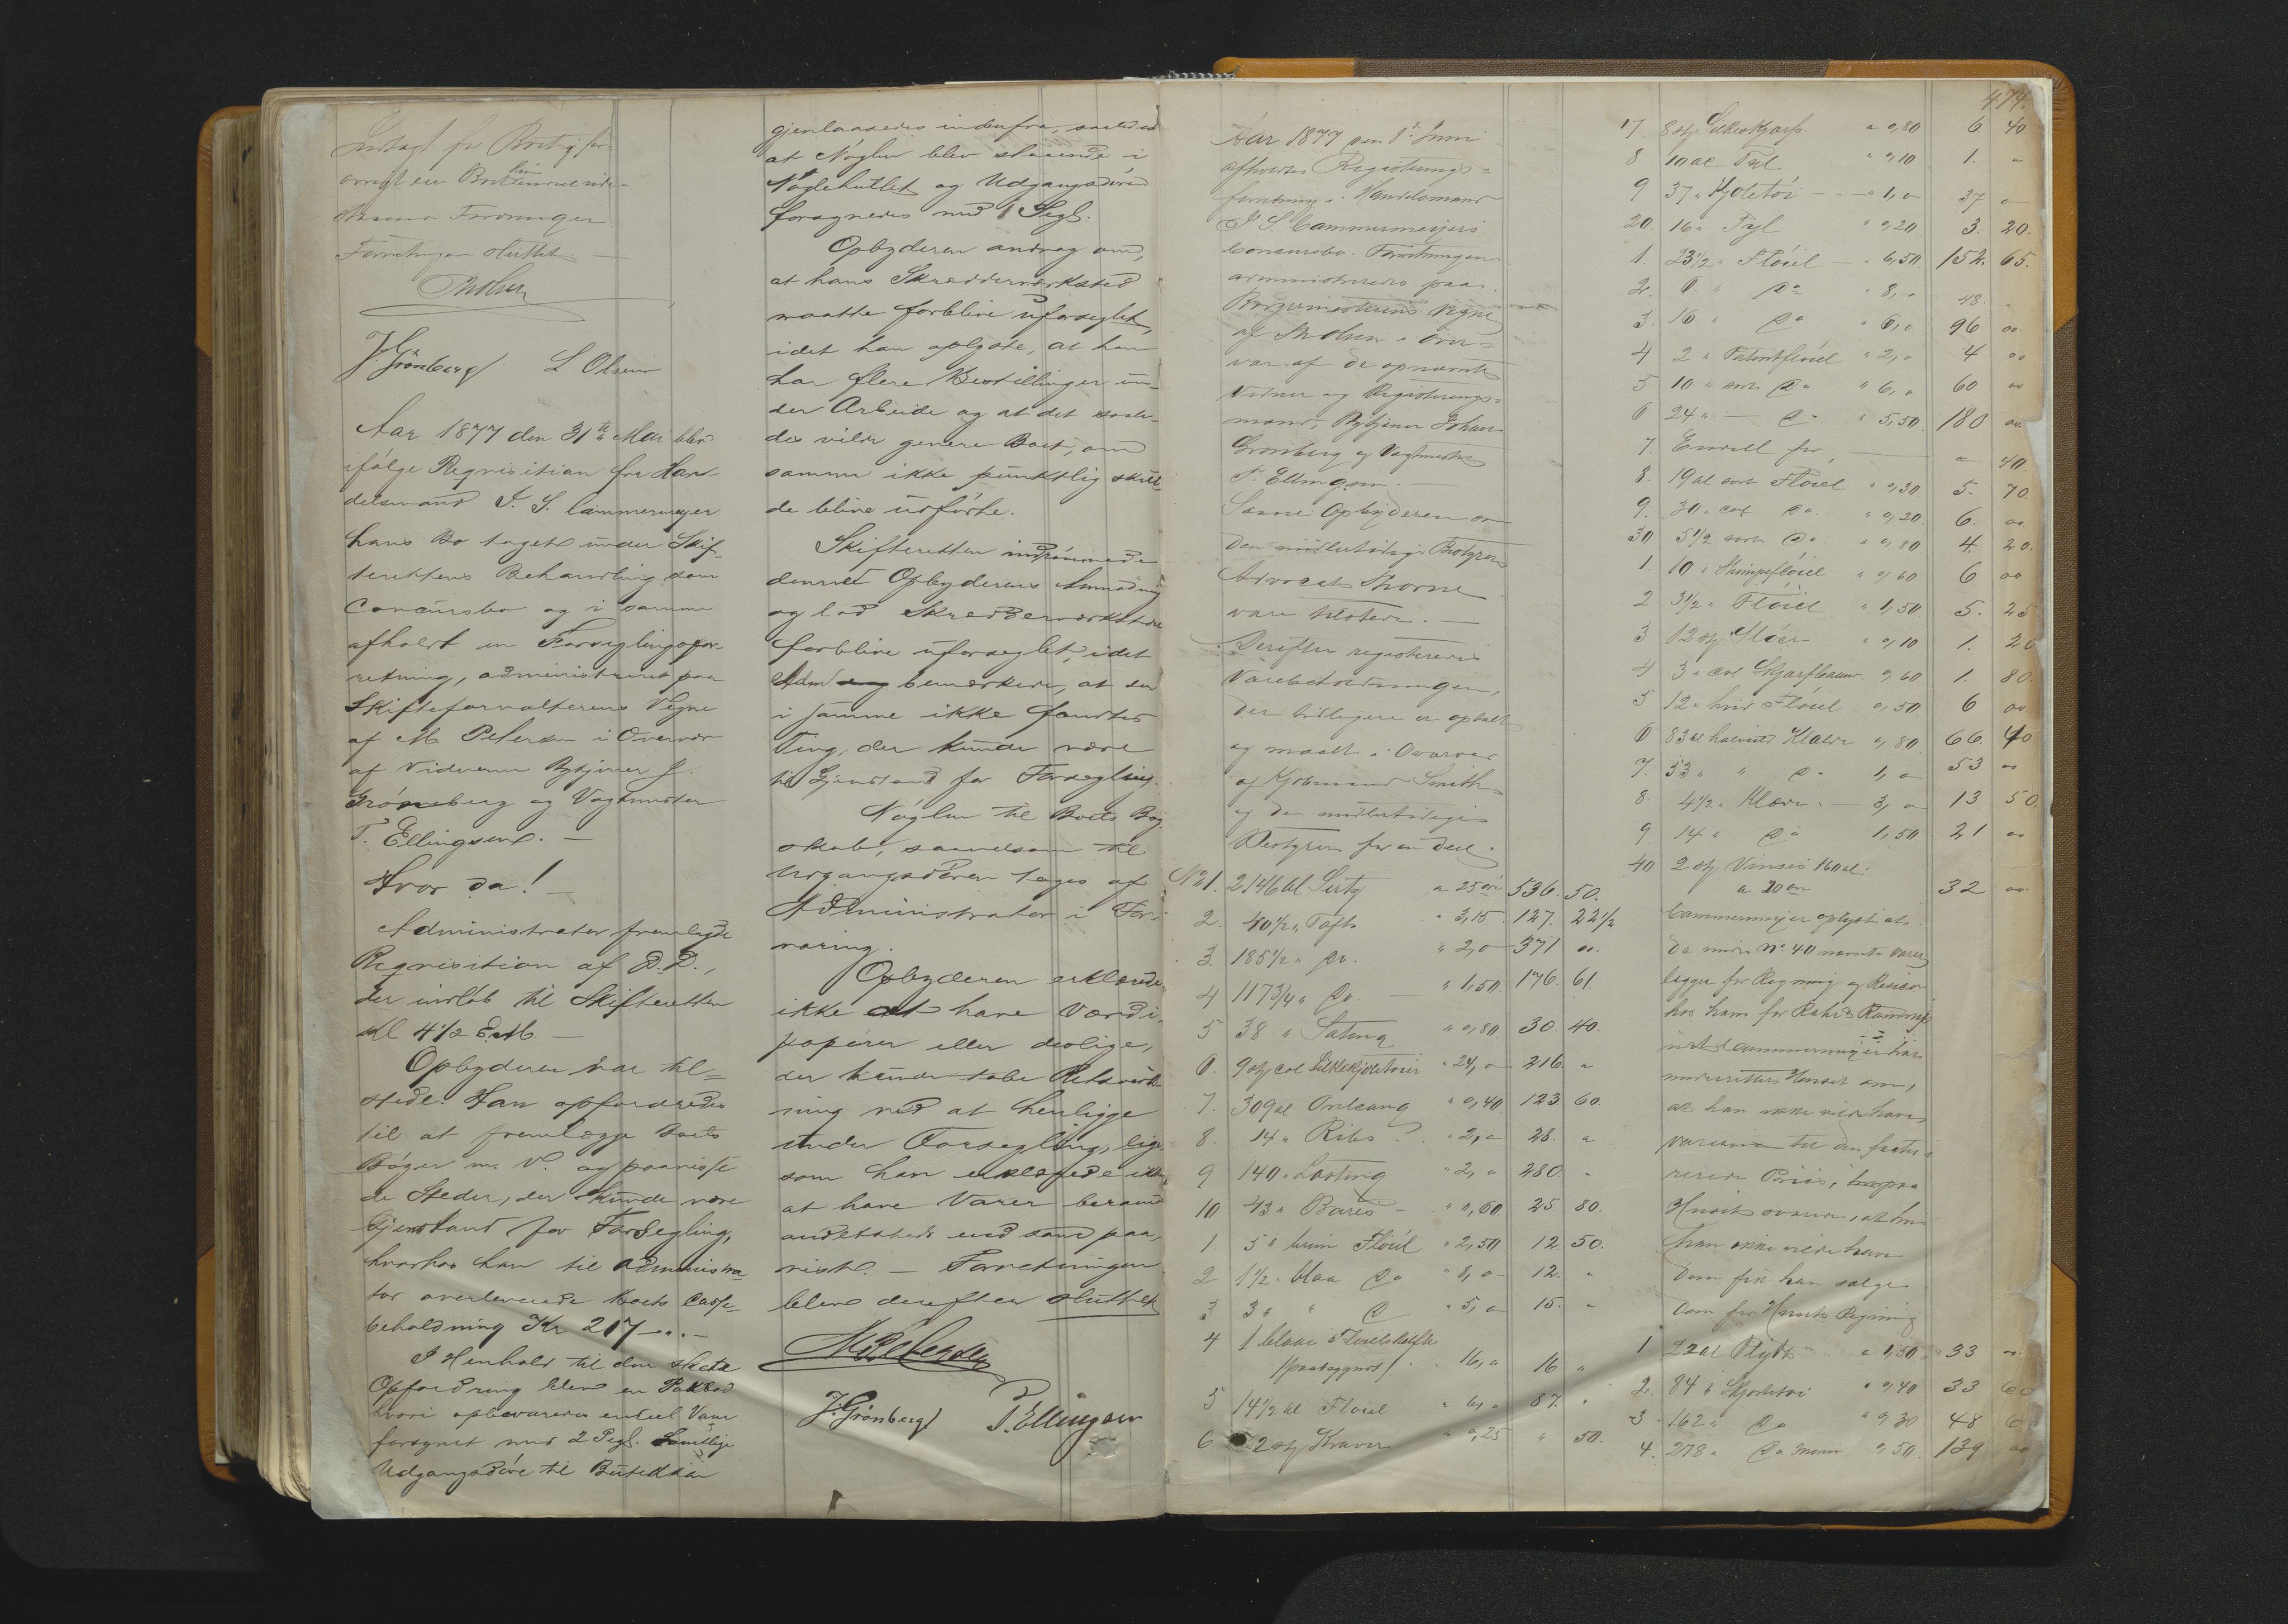 Indtægt for Boet og for
øvrigt en Bort
Fordringer.
Forretningen sluttet —
J Grönberg L Olsen
Aar 1877 den 31te Mai blev
ifølge Reqvisition fra Han-
delsmand J. S. Cammermeyer
hans Bo taget under Skif-
terettens Behandling som
Concursbo og i samme
afholdt en Forseglingsfor-
retning, administreret paa
Skifteforvalterens Vegne
af M. Petersen i Overvær
af Vidnerne Bytjener J.
Grönberg og Vagtmester
T. Ellingsen. —
Hvor da! —
Administrator fremlagde
Reqvisition af D. D.,
der indløb til Skifteretten
Kl 4 1/2 E.M. —
Opbyderen var til-
stede. Han opfordredes
til at fremlægge Boets
Bøger m. V. og paavise
de Steder, der kunde være
Gjenstand for Forsegling,
hvorhos han til Administra-
tor overleverede Boets Casse-
beholdning Kr 217 -"-
I Henhold til den skete
Opfordring blev en Pakbod
hvori opbevaredes endeel Varer
forsynet med 2 Segl. Samtlige
Udgangsdøre til Butikken
gjenlaasedes indenfra, saaledes
at Nøglen blev staaende i
Nøglehullet og Udgangsdøren
forsynedes med 1 Segl.
Opbyderen androg om,
at hans Skrædderværksted
maatte forblive uforseglet,
idet han oplyste, at han
har flere Bestillinger un-
der Arbeide og at det saale-
des vilde genere Boet, om
samme ikke punktlig skul-
de blive udførte.
Skifteretten indrømmede
Opbyderens Anmodning
og lod Skrædderværkstedet
forblive uforseglet, idet
Adm bemærkede, at der
i samme ikke fandtes
Ting, der kunde være
til Gjenstand for Forsegling.
Nøglen til Boets Bog-
skab, saavelsom til
Udgangsdøren toges af
Administrator i For-
varing.
Opbyderen erklærede
ikke at have Værdi-
papirer eller deslige,
der kunde tabe Retsvirk-
ning ved at henligge
under Forsegling, lige-
som han erklærede ikke
at have Varer beroende
andetsteds end som paa-
vist. — Forretningen
blev derefter sluttet
M Petersen
J. Grönberg T. Ellingsen
Aar 1877 den 8de Juni
afholdtes Registrerings-
forretning i Handelsmand
J S. Cammermeyers
Concursbo. Forretningen
administreredes paa
Borgermesterens Vegne
af Th Olsen i Over-
vær af de opnævnte
Vidner og Registrerings-
mænd, Bytjener Johan
Grönberg og Vagtmester
T. Ellingsen. —
Samt Opbyderen og
den midlertidige Bestyrer
Advocat Thorne
vare tilstede. —
Derefter registreredes
Varebeholdningen,
der tidligere er optalt
og maalt i Overvær
af Kjøbmand Smith
og den midlertidige
Bestyrer for en Deel.
No 1. 2146 al Sirts a 25 øre 536. 50.
2. 40 1/2 " Taft " 3,15 127. 22 1/2
3. 185 1/2 " Do. " 2,0 371 oo.
4 117 3/4 " Do. " 1,50 176. 61.
5 38 " Sateng " 0,80 30. 40.
6. 9 st col Silkekjoletøier " 24, o 216. "
7. 309 al Orleang " 0,40 123 60.
8. 14 " Ribs " 2, o 28. "
9 140 " Lasting " 2, o 280. "
10 43 " Bares " 0,60 25. 80.
1. 5 " brun Fløiel " 2,50 12. 50.
2 1 1/2 " blaa Do " 8, o 12. "
3 3 " " D " 5, o 15. "
4 1 blaa
/paabegyndt/. " 16, o 16 "
5 14 1/2 al Fløiel " 6, o 87. "
6 2 st Kraver " 0,25 " 50.
474.
17 8 st Silkeskjærf a 0,80 6 40
8 10 al Tyl " 0,10 1. "
9 37 " Kjoletøi " 1, o 37 "
20. 16 " Tyl " 0,20 3. 20.
1. 23 1/2 " Fløiel " 6,50. 152. 65.
2. 6. " Do " 8, o 48. "
3. 16 " Do " 6, o 96 oo
4 2 " Patentfløiel " 2, o 4 oo
5 10 " sort Do " 6, o 60 oo
6 24 " — Do " 5,50. 180 oo
7. Endeel for — " 40.
8. 19 al sort Fløiel " 0,30 5. 70.
9. 30 " col Do. " 0,20. 6. oo
30 5 1/2 sort Do. " 0,80 4. 20.
1. 10 " " 0,60 6 oo
2 3 1/2 " Fløiel " 1,50 5. 25
3 12 st Slør " 0,10 1. 20
4 3 " col 0,60 1. 80.
5 12 " hvid Fløiel 0,50 6 oo
6 83 al Klæde 0,80 66. 40
7. 53 " " Do 1, o 53 oo
8. 4 1/2 " Klæde 3, o 13 50.
9 14 " Do 1,50 21 oo
40 2 st 160 al.
a 20 øre 32 oo
Cammermeyer oplyste at
de under No 40 nævnte Varer
ligger for Regning og Risico
hos ham for
Cammermeyer har
underrettet Huset om,
at han ikke vilde have
Varerne til den factu-
rerede Priis, hvorpaa
Huset svarede, at hvis
han ikke vilde have
dem fik han sælge
dem for Husets Regning
1 22 al Plyds a 1,50. 33 oo.
2. 84 " Skjortetøi " 0,40 33 60
3 162 " Do " 0,30 48 6
4. 278 " Do 0,50. 139 oo